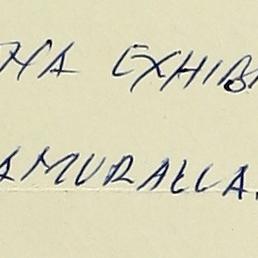 HA EXHIB
AMURALLA.